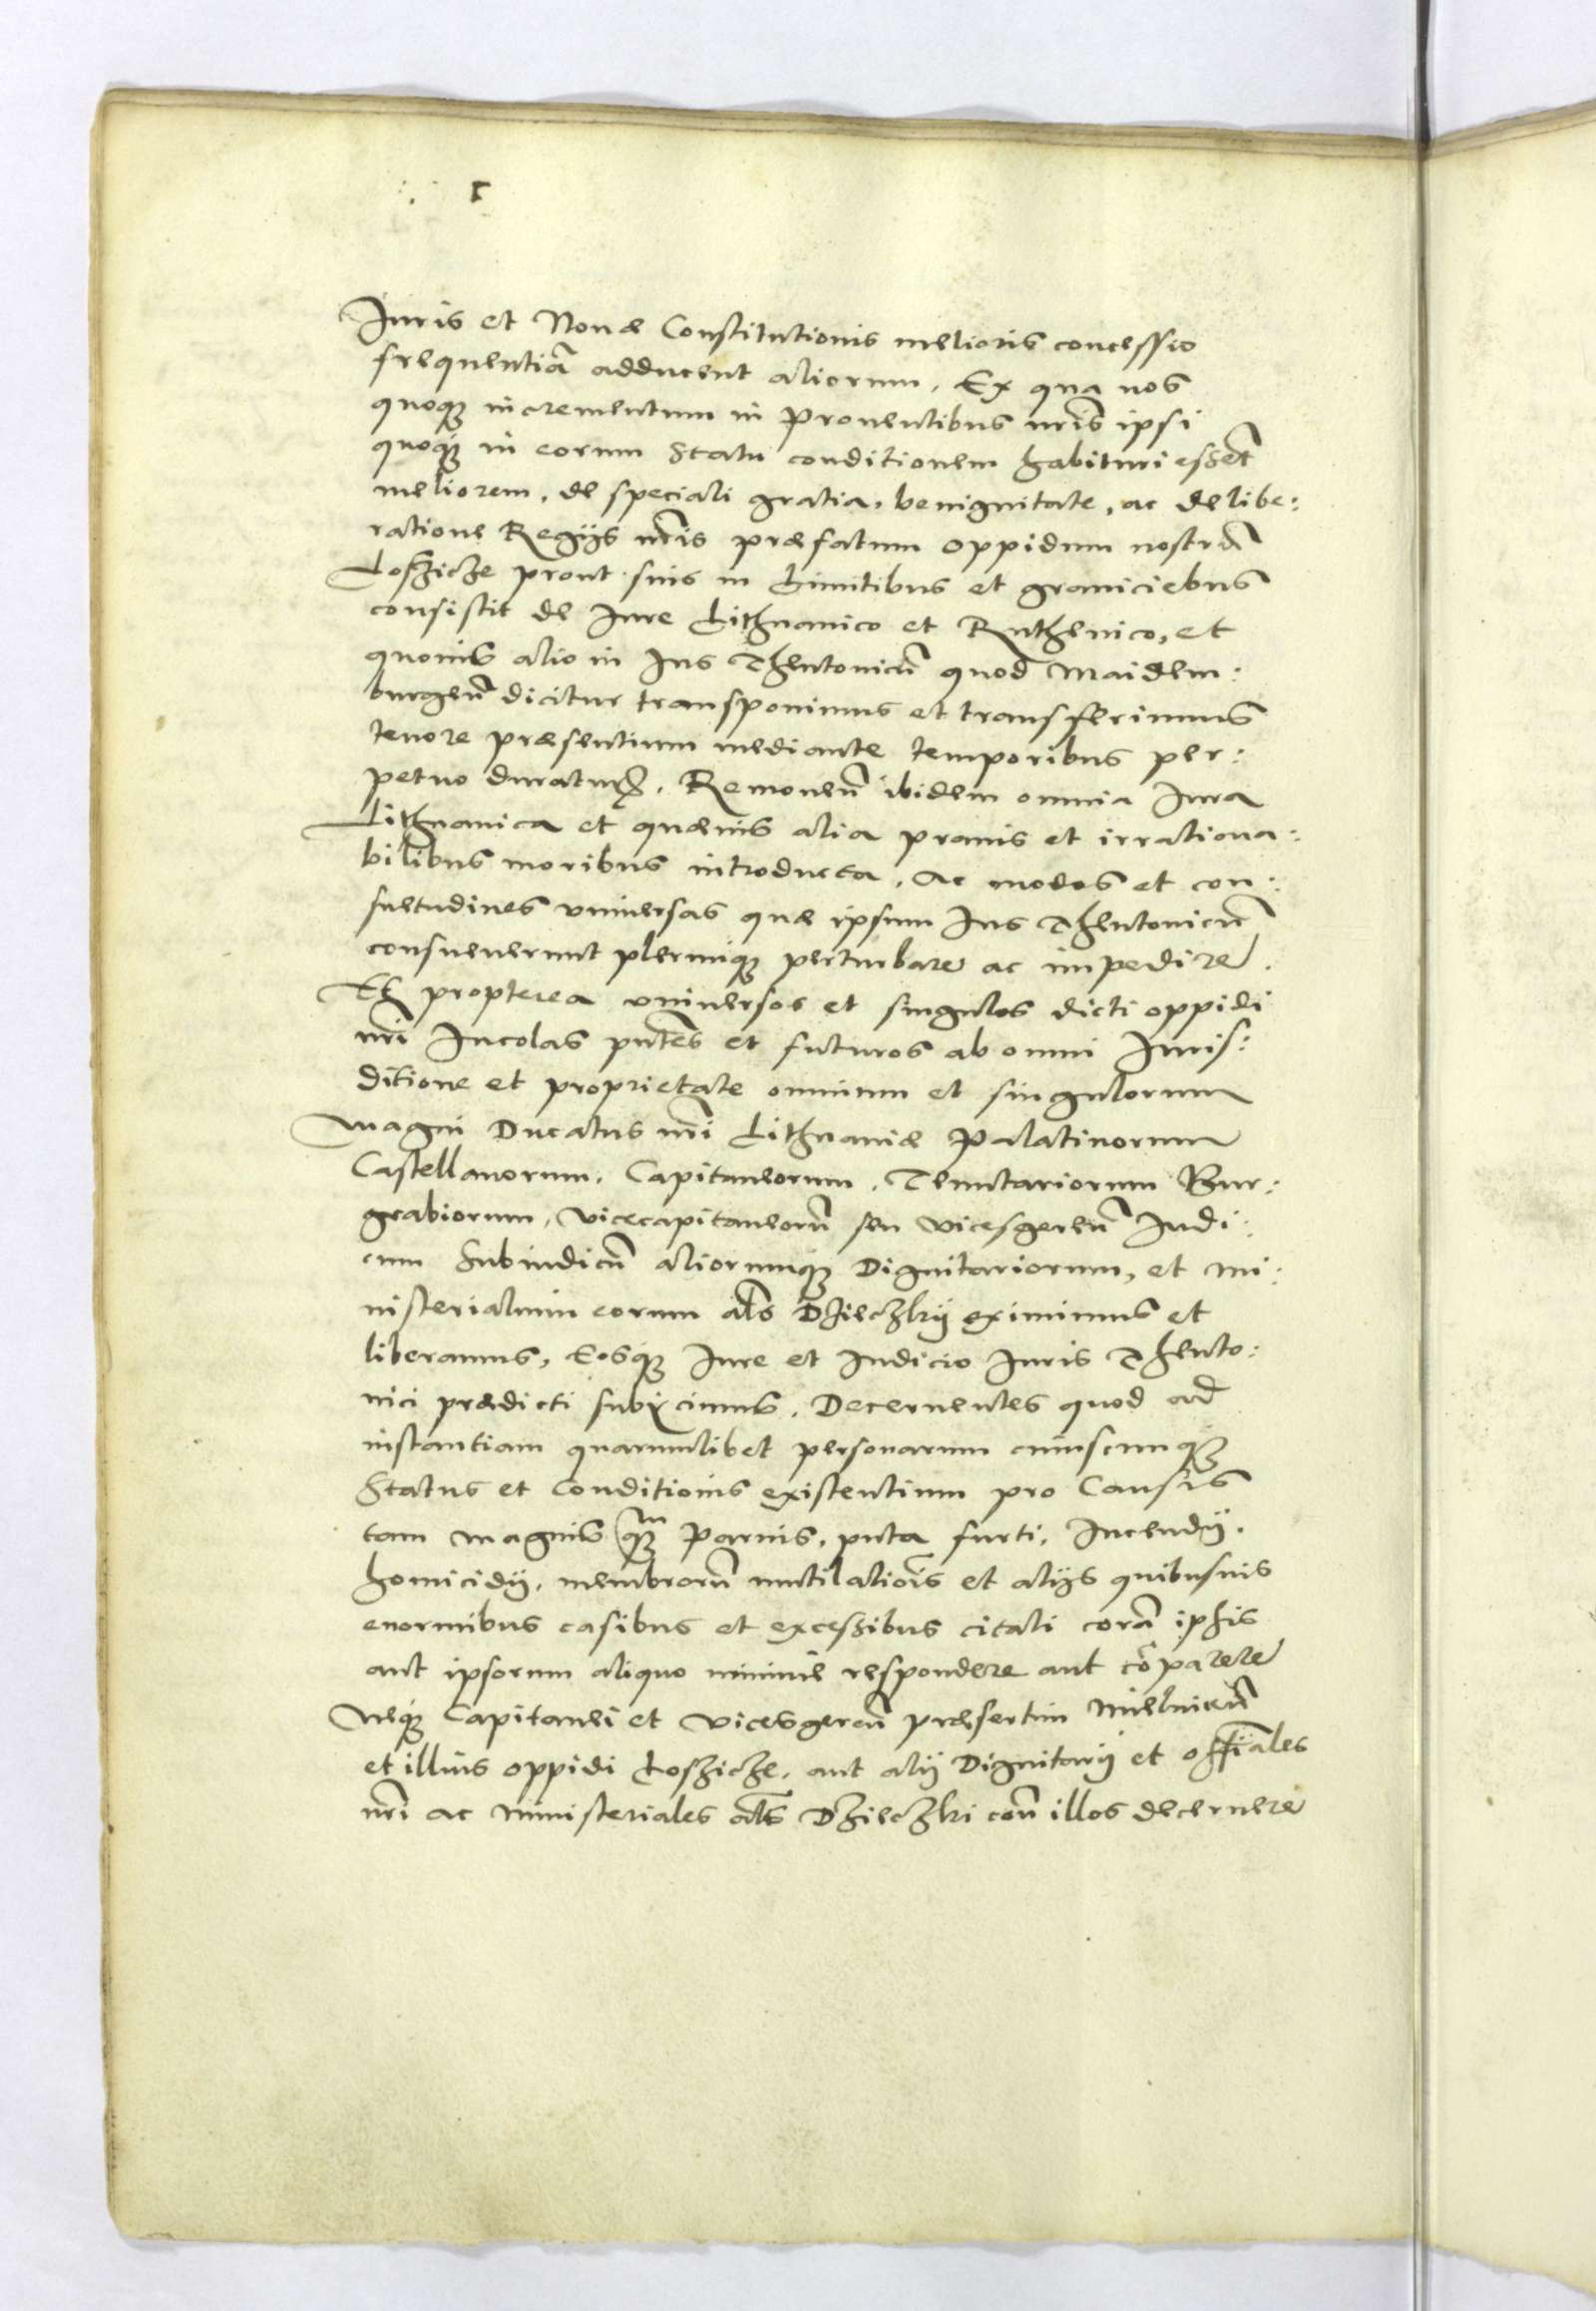 Iuris et Nouæ Constitutionis melioris concessio
frequentiã adducent aliorum. Ex qua nos
quoq; incrementum in Prouentibus nrĩs ipsi
quoq; in eorum Statu conditionem habituri esset̃
meliorem, de speciali gratia, benignitate, ac delibe:
ratione Regijs nrĩs præfatum oppidum nostrũ
Loszicze prout suis in Limitibus et graniciebus
consistit de Iure Lithuanico et Ruthenico, et
quouis alio in Ius Theutonicũ quod Maidem:
burgeñ dicitur transponimus et transferimus
tenore præsentium mediante temporibus per:
petuo duraturꝭ. Remoueñ ibidem omnia Iura
Lithuanica et quæuis alia prauis et irrationa:
bilibus moribus introducta, ac modos et con:
suetudines vniuersas quæ ipsum Ius Theutonicũ
consueuerunt plerumq; perturbare ac impedire.
Et propterea vniuersos et singulos dicti oppidi
nrĩ Incolas pñtes et futuros ab omni Iuris:
ditione et proprietate omnium et singulorum
Magni Ducatus nrĩ Lithuaniæ Palatinorum
Castellanorum, Capitaneorum, Tenutariorum Bur:
grabiorum, Vicecapitaneorũ seu Vicesgereñ Iudi:
cum Subiudicũ aliorumq; Dignitariorum, et mi:
nisterialium eorum als̃ Dzieczkij eximimus et
liberamus, Eosq; Iure et Iudicio Iuris Theuto:
nici prædicti subijcimus. Decernentes quod ad
instantiam quarumlibet personarum cuiuscunq;
Status et Conditionis existentium pro Causis
tam magnis q̃m Paruis, puta furti, Incendij,
homicidij, membrorũ mutilatiõis et alijs quibusuis
enormibus casibus et excessibus citati corã ipsis
aut ipsorum aliquo minime respondere aut cõparere
Neq; Capitanei et Vicesgereñ præsertim Mielnicẽn
et illius oppidi Loszicze, aut alij Dignitarij et offiãles
nrĩ ac Ministeriales als̃ Dzieczki coñ illos decernere